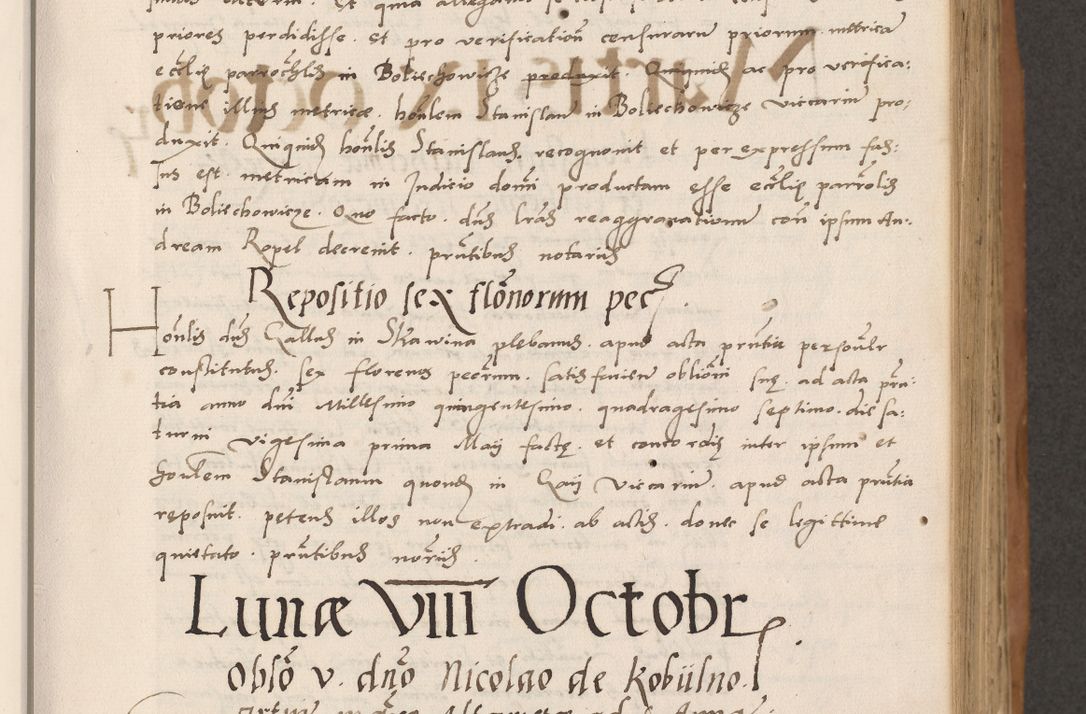 priores perdidisse. Et pro verificationē censurarū priorum metrica
eccłię parrochlis in Boliechowicze produxit. Quiquid ac pro verifica:
tione illius metricæ. honlem Stanislaū in Boliechowicze viccariū pro,
duxit. Quiquid honlis Stanislaus, recognovit et per expressum fas:
sus est. metricam in Iudicio domi productam esse eccłię parrolis
in Boliechowicze. Quo facto. dns lras reaggravationum con ipsum An,
dream Ropel decrevit. pntibus notariis
Repositio sex flonorum pec
Honlis dns Gallus in Skawina plebanus. apud acta pntia personlr
constitutus. sex florenos pecrum. satisfaciens oblioni suę. ad acta prn
tia anno dni Millesimo quingentesimo. quadragesimo septimo. die sa:
turni vigesima prima Maij factę. et concordię inter ipsum et
honlem Stanislaum quond in Gaij Viccariū. apud acta pntia
reposuit. petens illos non extradi. ab actis. donec se legittime
quietato. pntibus noriis
Lunæ VIII Octobr
Oblō v. dno Nicolao de Kobiilno